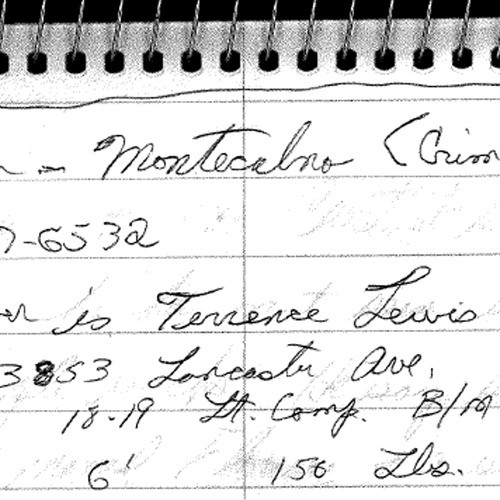 - Montecalmo (Crim
7-6532
er is Terrence Lewis
3853 Lancaster Ave.
18-19 Lt. Comp. B/M
6' 156 Lbs.